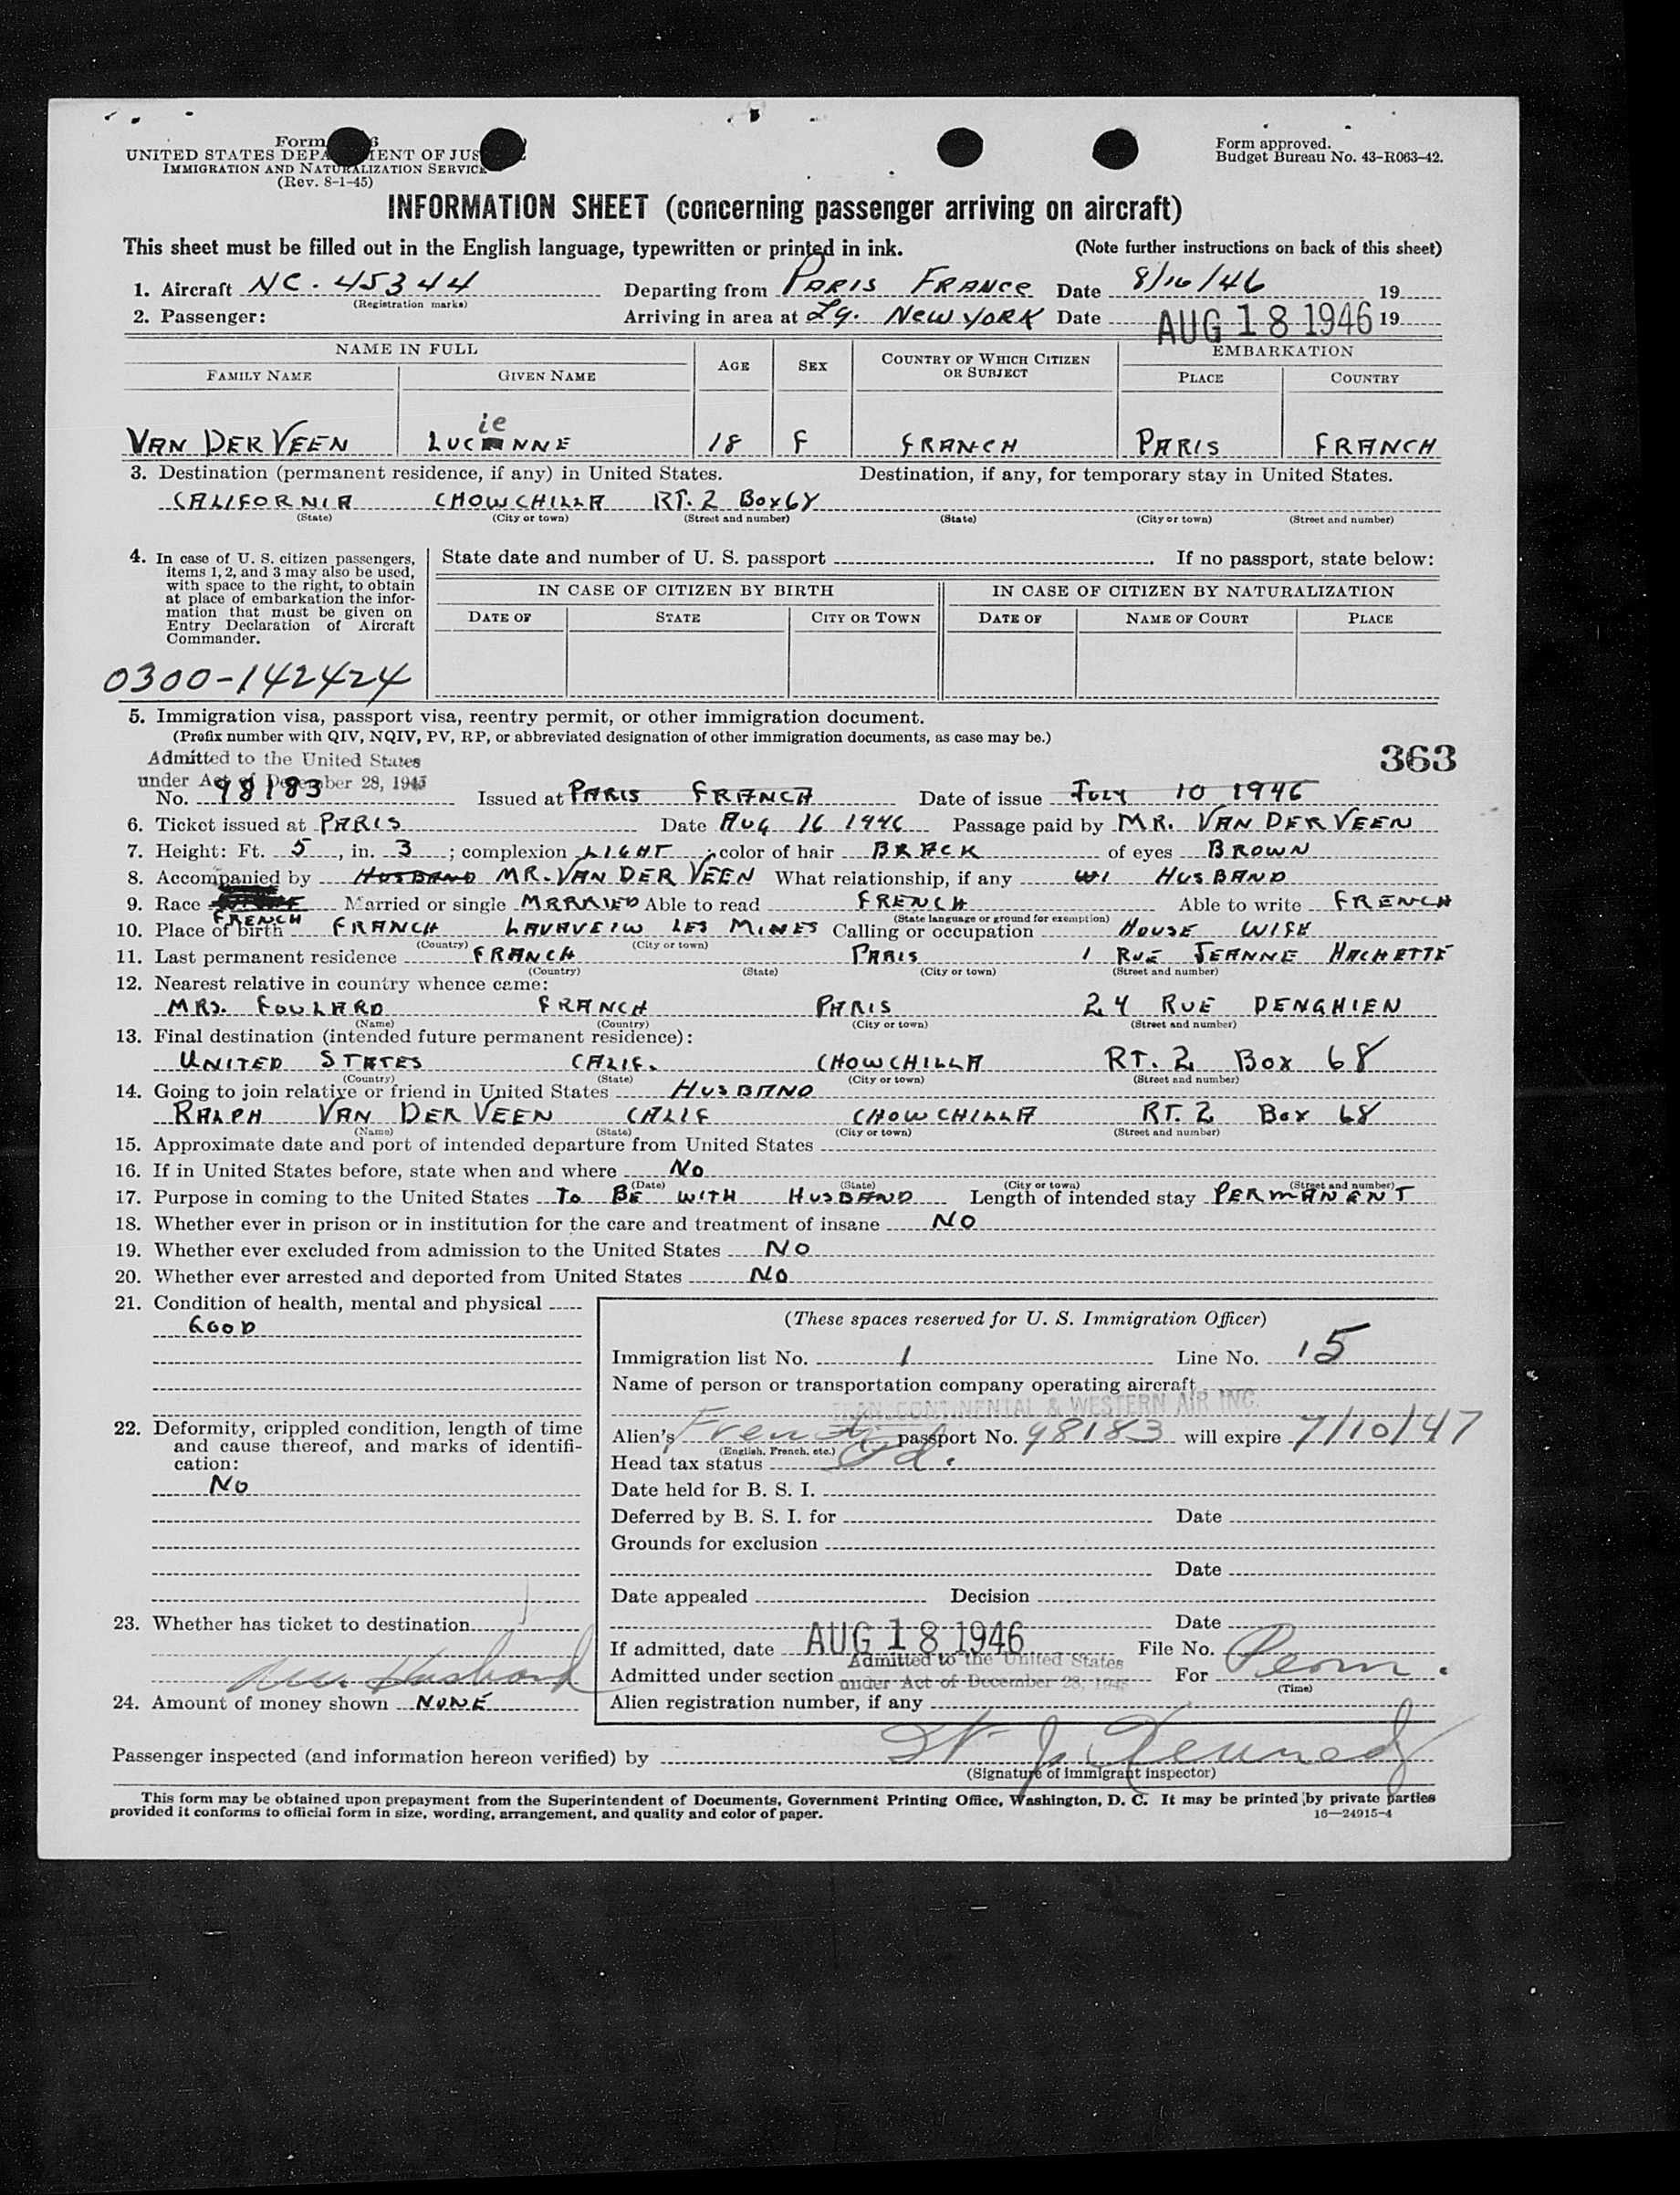 Form
UNITED STATES DEPA MENT OF JUS
IMMIGRATION AND NATURALIZATION SERVICE
(Rev. 8-1-45)
Form approved.
Budget Bureau No. 43-R063-42.
INFORMATION SHEET (concerning passenger arriving on aircraft)
This sheet must be filled out in the English language, typewritten or printed in ink. (Note further instructions on back of this sheet)
1. Aircraft NC. 45344 Departing from PARIS FRANCE Date 8/16/46 19
(Registration marks)
2. Passenger: Arriving in area at Lg. NEW YORK Date AUG 18 1946 19
NAME IN FULL AGE SEX COUNTRY OF WHICH CITIZEN OR SUBJECT EMBARKATION
FAMILY NAME GIVEN NAME PLACE COUNTRY
ie
VAN DER VEEN LUC NNE 18 F FRANCH PARIS FRANCH
3. Destination (permanent residence, if any) in United States. Destination, if any, for temporary stay in United States.
CALIFORNIA CHOWCHILLA RT. 2 Box 68
(State) (City or town) (Street and number) (State) (City or town) (Street and number)
4. In case of U. S. citizen passengers,
items 1, 2, and 3 may also be used,
with space to the right, to obtain
at place of embarkation the infor-
mation that must be given on
Entry Declaration of Aircraft
Commander.
State date and number of U. S. passport If no passport, state below:
IN CASE OF CITIZEN BY BIRTH IN CASE OF CITIZEN BY NATURALIZATION
DATE OF STATE CITY OR TOWN DATE OF NAME OF COURT PLACE
0300-142424
5. Immigration visa, passport visa, reentry permit, or other immigration document.
(Prefix number with QIV, NQIV, PV, RP, or abbreviated designation of other immigration documents, as case may be.)
363
Admitted to the United States
under Act of December 28, 1945
No. 98183 Issued at PARIS FRANCH Date of issue JULY 10 1946
6. Ticket issued at PARIS Date AUG 16 1946 Passage paid by MR. VAN DER VEEN
7. Height: Ft. 5, in. 3; complexion LIGHT; color of hair BRACK of eyes BROWN
8. Accompanied by HUSBAND MR. VAN DER VEEN What relationship, if any WI HUSBAND
9. Race Married or single MARRIED Able to read FRENCH Able to write FRENCH
FRENCH (State language or ground for exemption)
10. Place of birth FRANCH LAVAVEIW LES MINES Calling or occupation HOUSE WIFE
(Country) (City or town)
11. Last permanent residence FRANCH PARIS 1 RUE JEANNE HACHETTE
(Country) (State) (City or town) (Street and number)
12. Nearest relative in country whence came:
MRS. FOULARD FRANCH PARIS 24 RUE DENGHIEN
(Name) (Country) (City or town) (Street and number)
13. Final destination (intended future permanent residence):
UNITED STATES CALIF. CHOWCHILLA RT. 2 Box 68
(Country) (State) (City or town) (Street and number)
14. Going to join relative or friend in United States HUSBAND
RALPH VAN DER VEEN CALIF CHOWCHILLA RT. 2 Box 68
(Name) (State) (City or town) (Street and number)
15. Approximate date and port of intended departure from United States
16. If in United States before, state when and where No
(Date) (State) (City or town) (Street and number)
17. Purpose in coming to the United States To BE WITH HUSBAND Length of intended stay PERMANENT
18. Whether ever in prison or in institution for the care and treatment of insane NO
19. Whether ever excluded from admission to the United States No
20. Whether ever arrested and deported from United States No
21. Condition of health, mental and physical
GOOD
22. Deformity, crippled condition, length of time
and cause thereof, and marks of identifi-
cation:
No
23. Whether has ticket to destination
Husband
24. Amount of money shown NONE
(These spaces reserved for U. S. Immigration Officer)
Immigration list No. 1 Line No. 15
Name of person or transportation company operating aircraft
TRANSCONTINENTAL & WESTERN AIR INC.
Alien's French passport No. 98183 will expire 7/10/47
(English, French, etc.)
Head tax status
Date held for B. S. I.
Deferred by B. S. I. for Date
Grounds for exclusion
Date
Date appealed Decision
Date
If admitted, date AUG 18 1946 File No.
Admitted to the United States
Admitted under section under Act of December 28, 1945 For Perm.
(Time)
Alien registration number, if any
Passenger inspected (and information hereon verified) by J. Kennedy
(Signature of immigrant inspector)
This form may be obtained upon prepayment from the Superintendent of Documents, Government Printing Office, Washington, D. C. It may be printed by private parties
provided it conforms to official form in size, wording, arrangement, and quality and color of paper. 16—24915-4